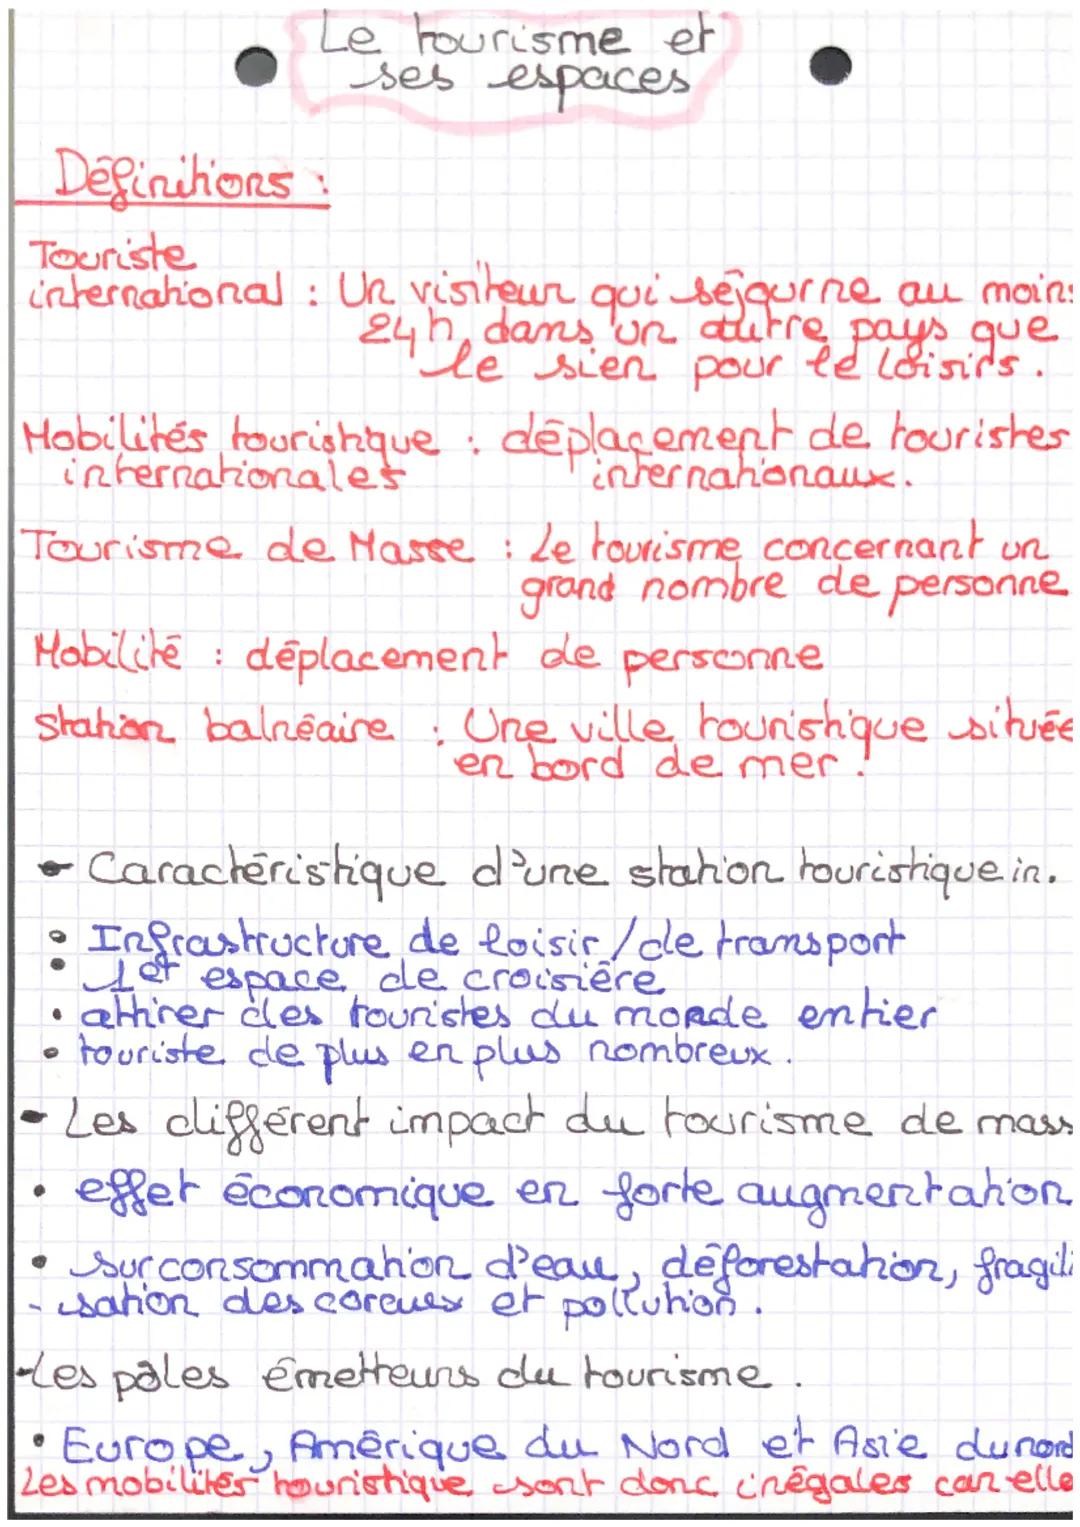 Le tourisme et
ses espaces
Définitions :
Touriste
international : Un visiteur qui séjourne au moins
24h dans un autre pays que
le sien pour le loisirs.
Mobilités touristique : déplacement de touristes
internationales internationaux.
Tourisme de Masse : Le tourisme concernant un
grand nombre de personne
Mobilité : déplacement de personne
Station balnéaire : Une ville touristique située
en bord de mer.
- Caractéristique d'une station touristique in.
• Infrastructure de loisir / de transport
• 1er espace de croisière
• attirer des touristes du monde entier
• touriste de plus en plus nombreux.
- Les différent impact du tourisme de mass
• effet économique en forte augmentation
• surconsommation d'eau, déforestation, fragili
- sation des coreues et pollution.
- Les pôles émetteurs du tourisme.
• Europe, Amérique du Nord et Asie du nord
Les mobilités touristique sont donc inégales car elle